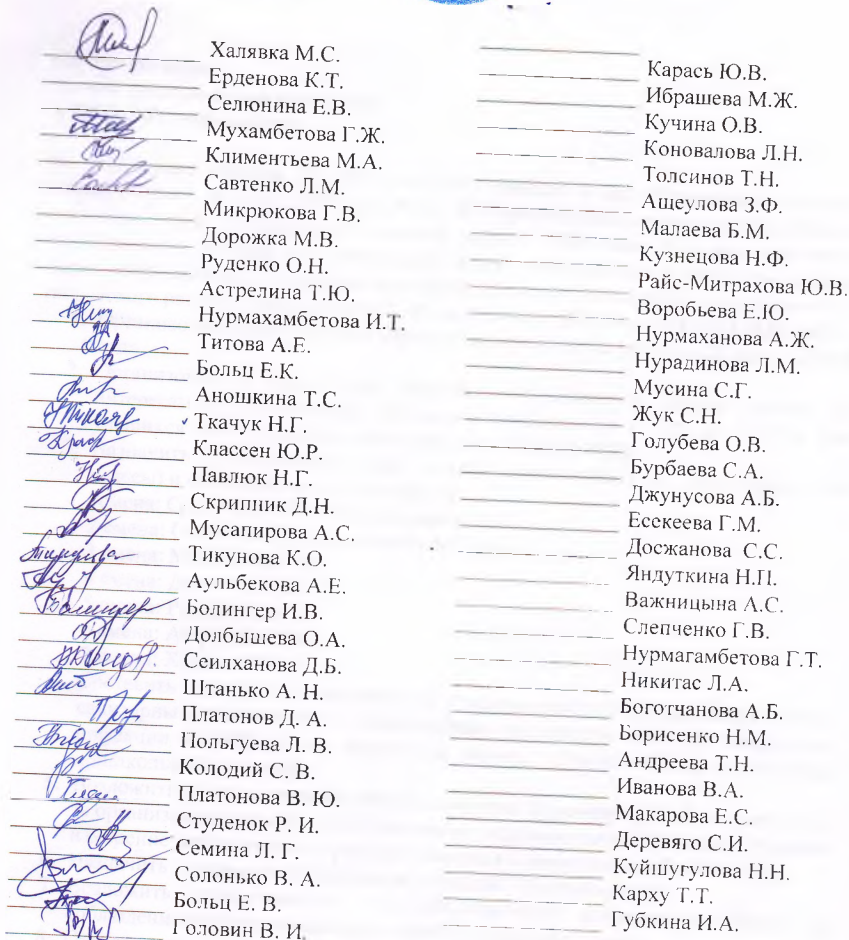 Халявка М.С.
Ерденова К.Т.
Селюнина Е.В.
Мухамбетова Г.Ж.
Климентьева М.А.
Савтенко Л.М.
Микрюкова Г.В.
Дорожка М.В.
Руденко О.Н.
Астрелина Т.Ю.
Нурмахамбетова И.Т.
Титова А.Е.
Больц Е.К.
Аношкина Т.С.
Ткачук Н.Г.
Классен Ю.Р.
Павлюк Н.Г.
Скрипник Д.Н.
Мусапирова А.С.
Тикунова К.О.
Аульбекова А.Е.
Болингер И.В.
Долбышева О.А.
Сеилханова Д.Б.
Штанько А. Н.
Платонов Д. А.
Польгуева Л. В.
Колодий С. В.
Платонова В. Ю.
Студенок Р. И.
Семина Л. Г.
Солонько В. А.
Больц Е. В.
Головин В. И.
Карась Ю.В.
Ибрашева М.Ж.
Кучина О.В.
Коновалова Л.Н.
Толсинов Т.Н.
Ащеулова З.Ф.
Малаева Б.М.
Кузнецова Н.Ф.
Райс-Митрахова Ю.В.
Воробьева Е.Ю.
Нурмаханова А.Ж.
Нурадинова Л.М.
Мусина С.Г.
Жук С.Н.
Голубева О.В.
Бурбаева С.А.
Джунусова А.Б.
Есекеева Г.М.
Досжанова С.С.
Яндуткина Н.П.
Важницына А.С.
Слепченко Г.В.
Нурмагамбетова Г.Т.
Никитас Л.А.
Боготчанова А.Б.
Борисенко Н.М.
Андреева Т.Н.
Иванова В.А.
Макарова Е.С.
Деревяго С.И.
Куйшугулова Н.Н.
Карху Т.Т.
Губкина И.А.